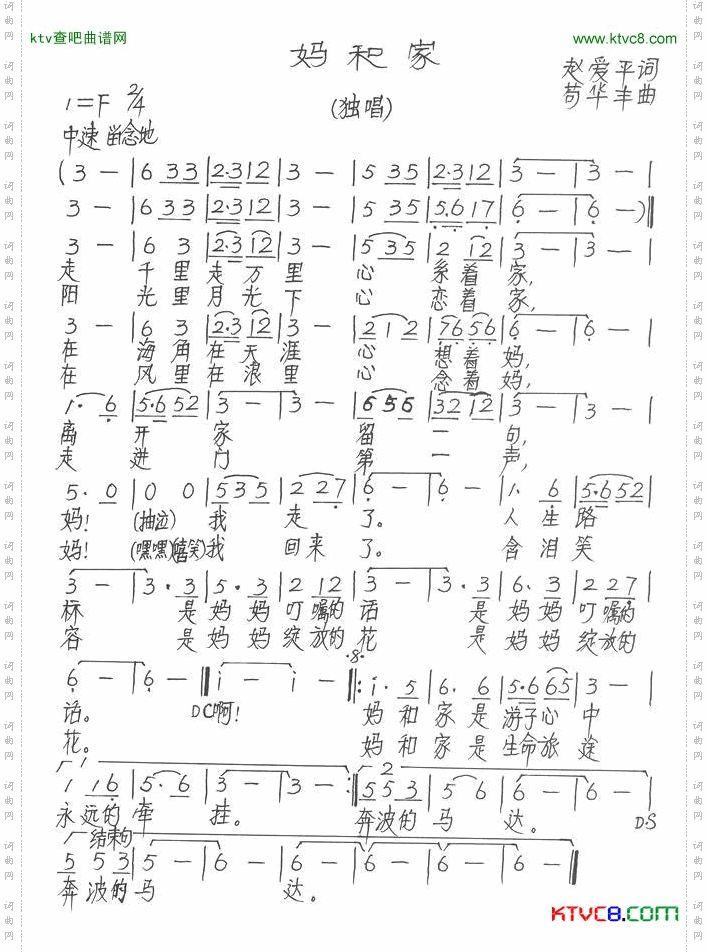 ktv查吧曲谱网
www.ktvc8.com
妈和家
赵爱平词
苟华丰曲
1=F 2/4
(独唱)
中速 留念地
(3 — | 6 33 | 2·3 12 | 3 — | 5 35 | 2·3 12 | 3 — | 3 — |
3 — | 6 33 | 2·3 12 | 3 — | 5 35 | 5·6 17 | 6 — | 6 —)‖
3 — | 6 3 | 2·3 12 | 3 — | 5 35 | 2 12 | 3 — | 3 — |
走 千里走万里 心系着家,
阳 光里月光下 心恋着家,
3 — | 6 3 | 2·3 12 | 3 — | 2 1 2 | 76 56 | 6 — | 6 — |
在 海角在天涯 心想着妈,
在 风里在浪里 心念着妈,
1· 6 | 5·6 52 | 3 — | 3 — | 6 5 6 | 32 12 | 3 — | 3 — |
离开家 留一句,
走进门 第一声,
5· 0 | 0 0 | 5 3 5 | 2 27 | 6 — | 6 — | 1· 6 | 5·6 52 |
妈! (抽泣) 我走了。 人生路
妈! (嘿嘿)(嘻笑)我回来了。 含泪笑
3 — | 3· 3 | 5· 3 | 2 12 | 3 — | 3· 3 | 6· 3 | 2 27 |
是妈妈叮嘱的话 是妈妈叮嘱的
容 是妈妈绽放的花 是妈妈绽放的
·8·
6 — | 6 — ‖ i — | i — ‖: i· 5 | 6· 6 | 5·6 65 | 3 — |
话。 DC啊! 妈和家是游子心中
花。 妈和家是生命旅途
1 2
1 16 | 5· 6 | 3 — | 3 — :‖ 5 5 3 | 5 6 | 6 — | 6 — |
永远的牵挂。 奔波的马达。 D.S
结束句
5 5 3 | 5 — | 6 — | 6 — | 6 — | 6 — | 6 — | 6 — ‖
奔波的马达。
KTVC8.com
词曲网